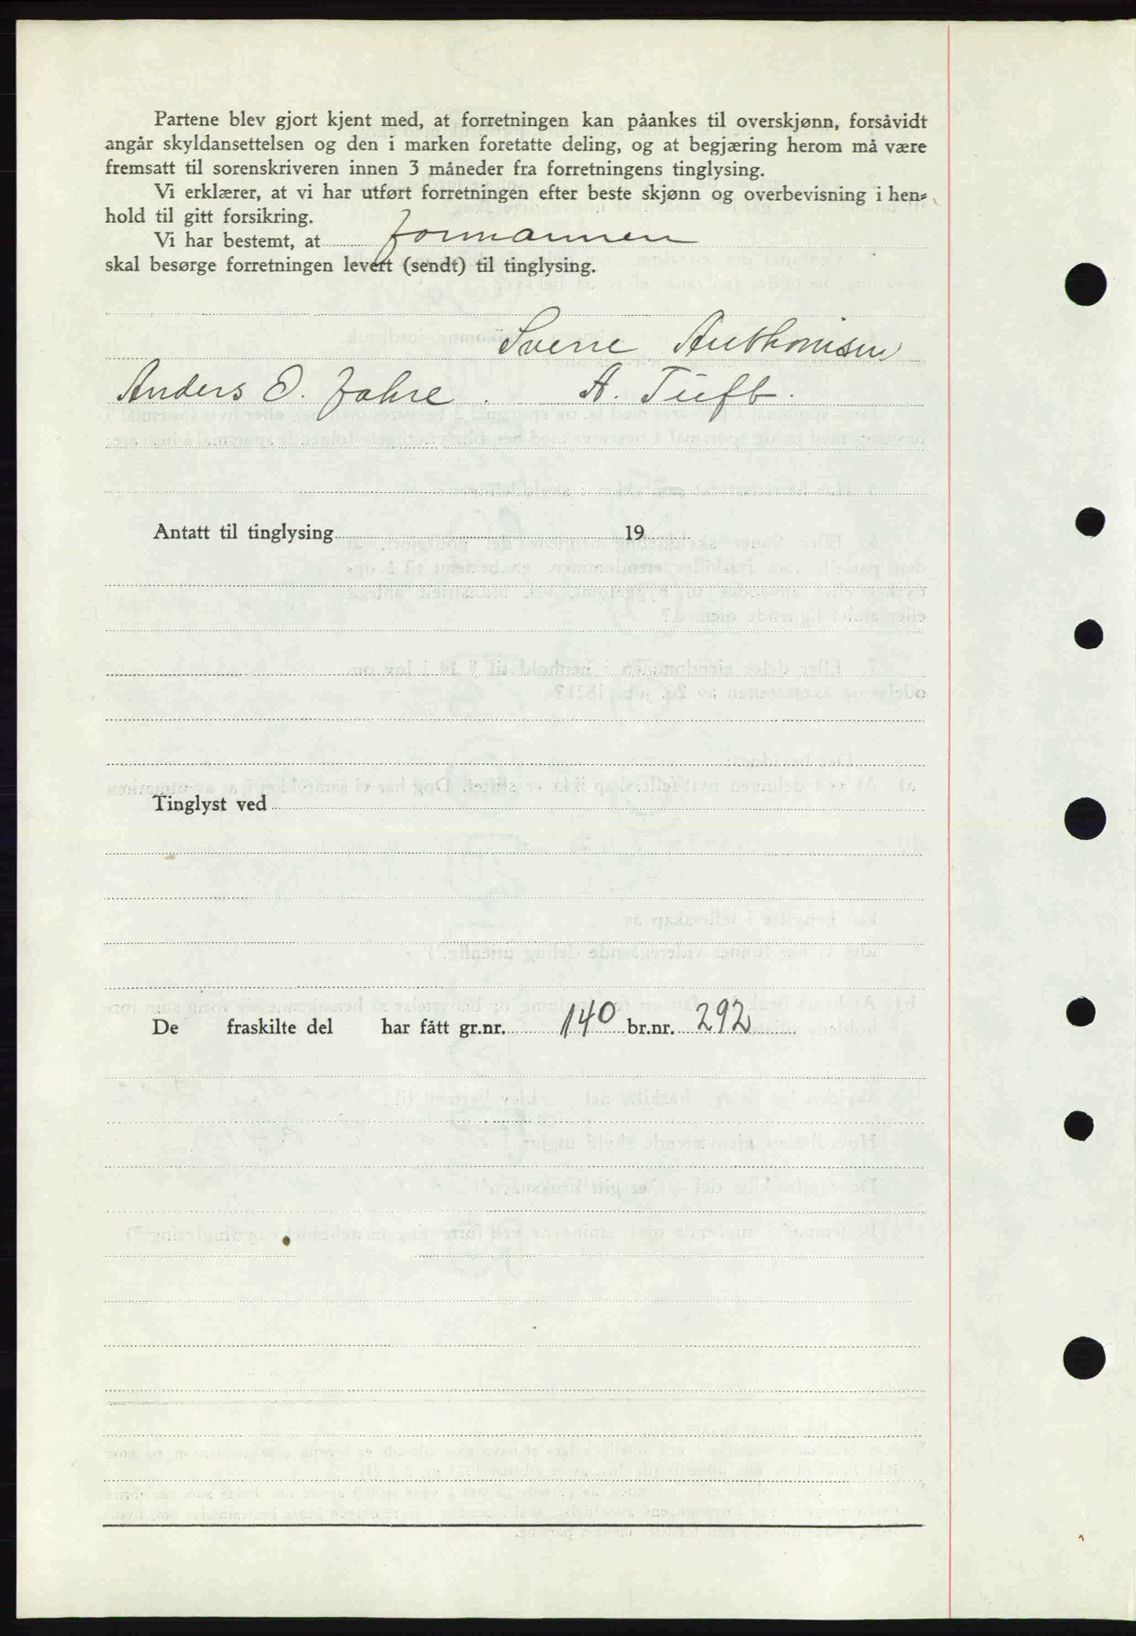 Partene blev gjort kjent med, at forretningen kan påankes til overskjønn, forsåvidt
angår skyldansettelsen og den i marken foretatte deling, og at begjæring herom må være
fremsatt til sorenskriveren innen 3 måneder fra forretningens tinglysing.
Vi erklærer, at vi har utført forretningen efter beste skjønn og overbevisning i hen-
hold til gitt forsikring.
Vi har bestemt, at formannen
skal besørge forretningen levert (sendt) til tinglysing.
Sverre Anthonisen
Anders O. Jahre. A. Tuft.
Antatt til tinglysing 19
Tinglyst ved
De fraskilte del har fått gr.nr. 140 br.nr. 292